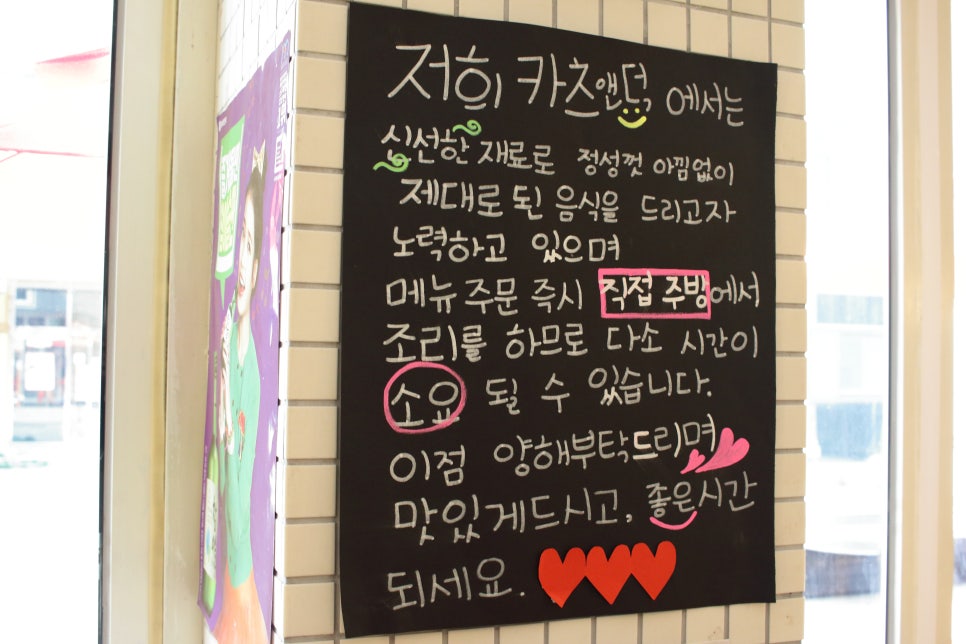 저희 카츠앤덕 에서는
신선한 재료로 정성껏 아낌없이
제대로 된 음식을 드리고자
노력하고 있으며
메뉴 주문 즉시 직접 주방에서
조리를 하므로 다소 시간이
소요 될 수 있습니다.
이점 양해부탁드리며
맛있게드시고, 좋은시간
되세요.